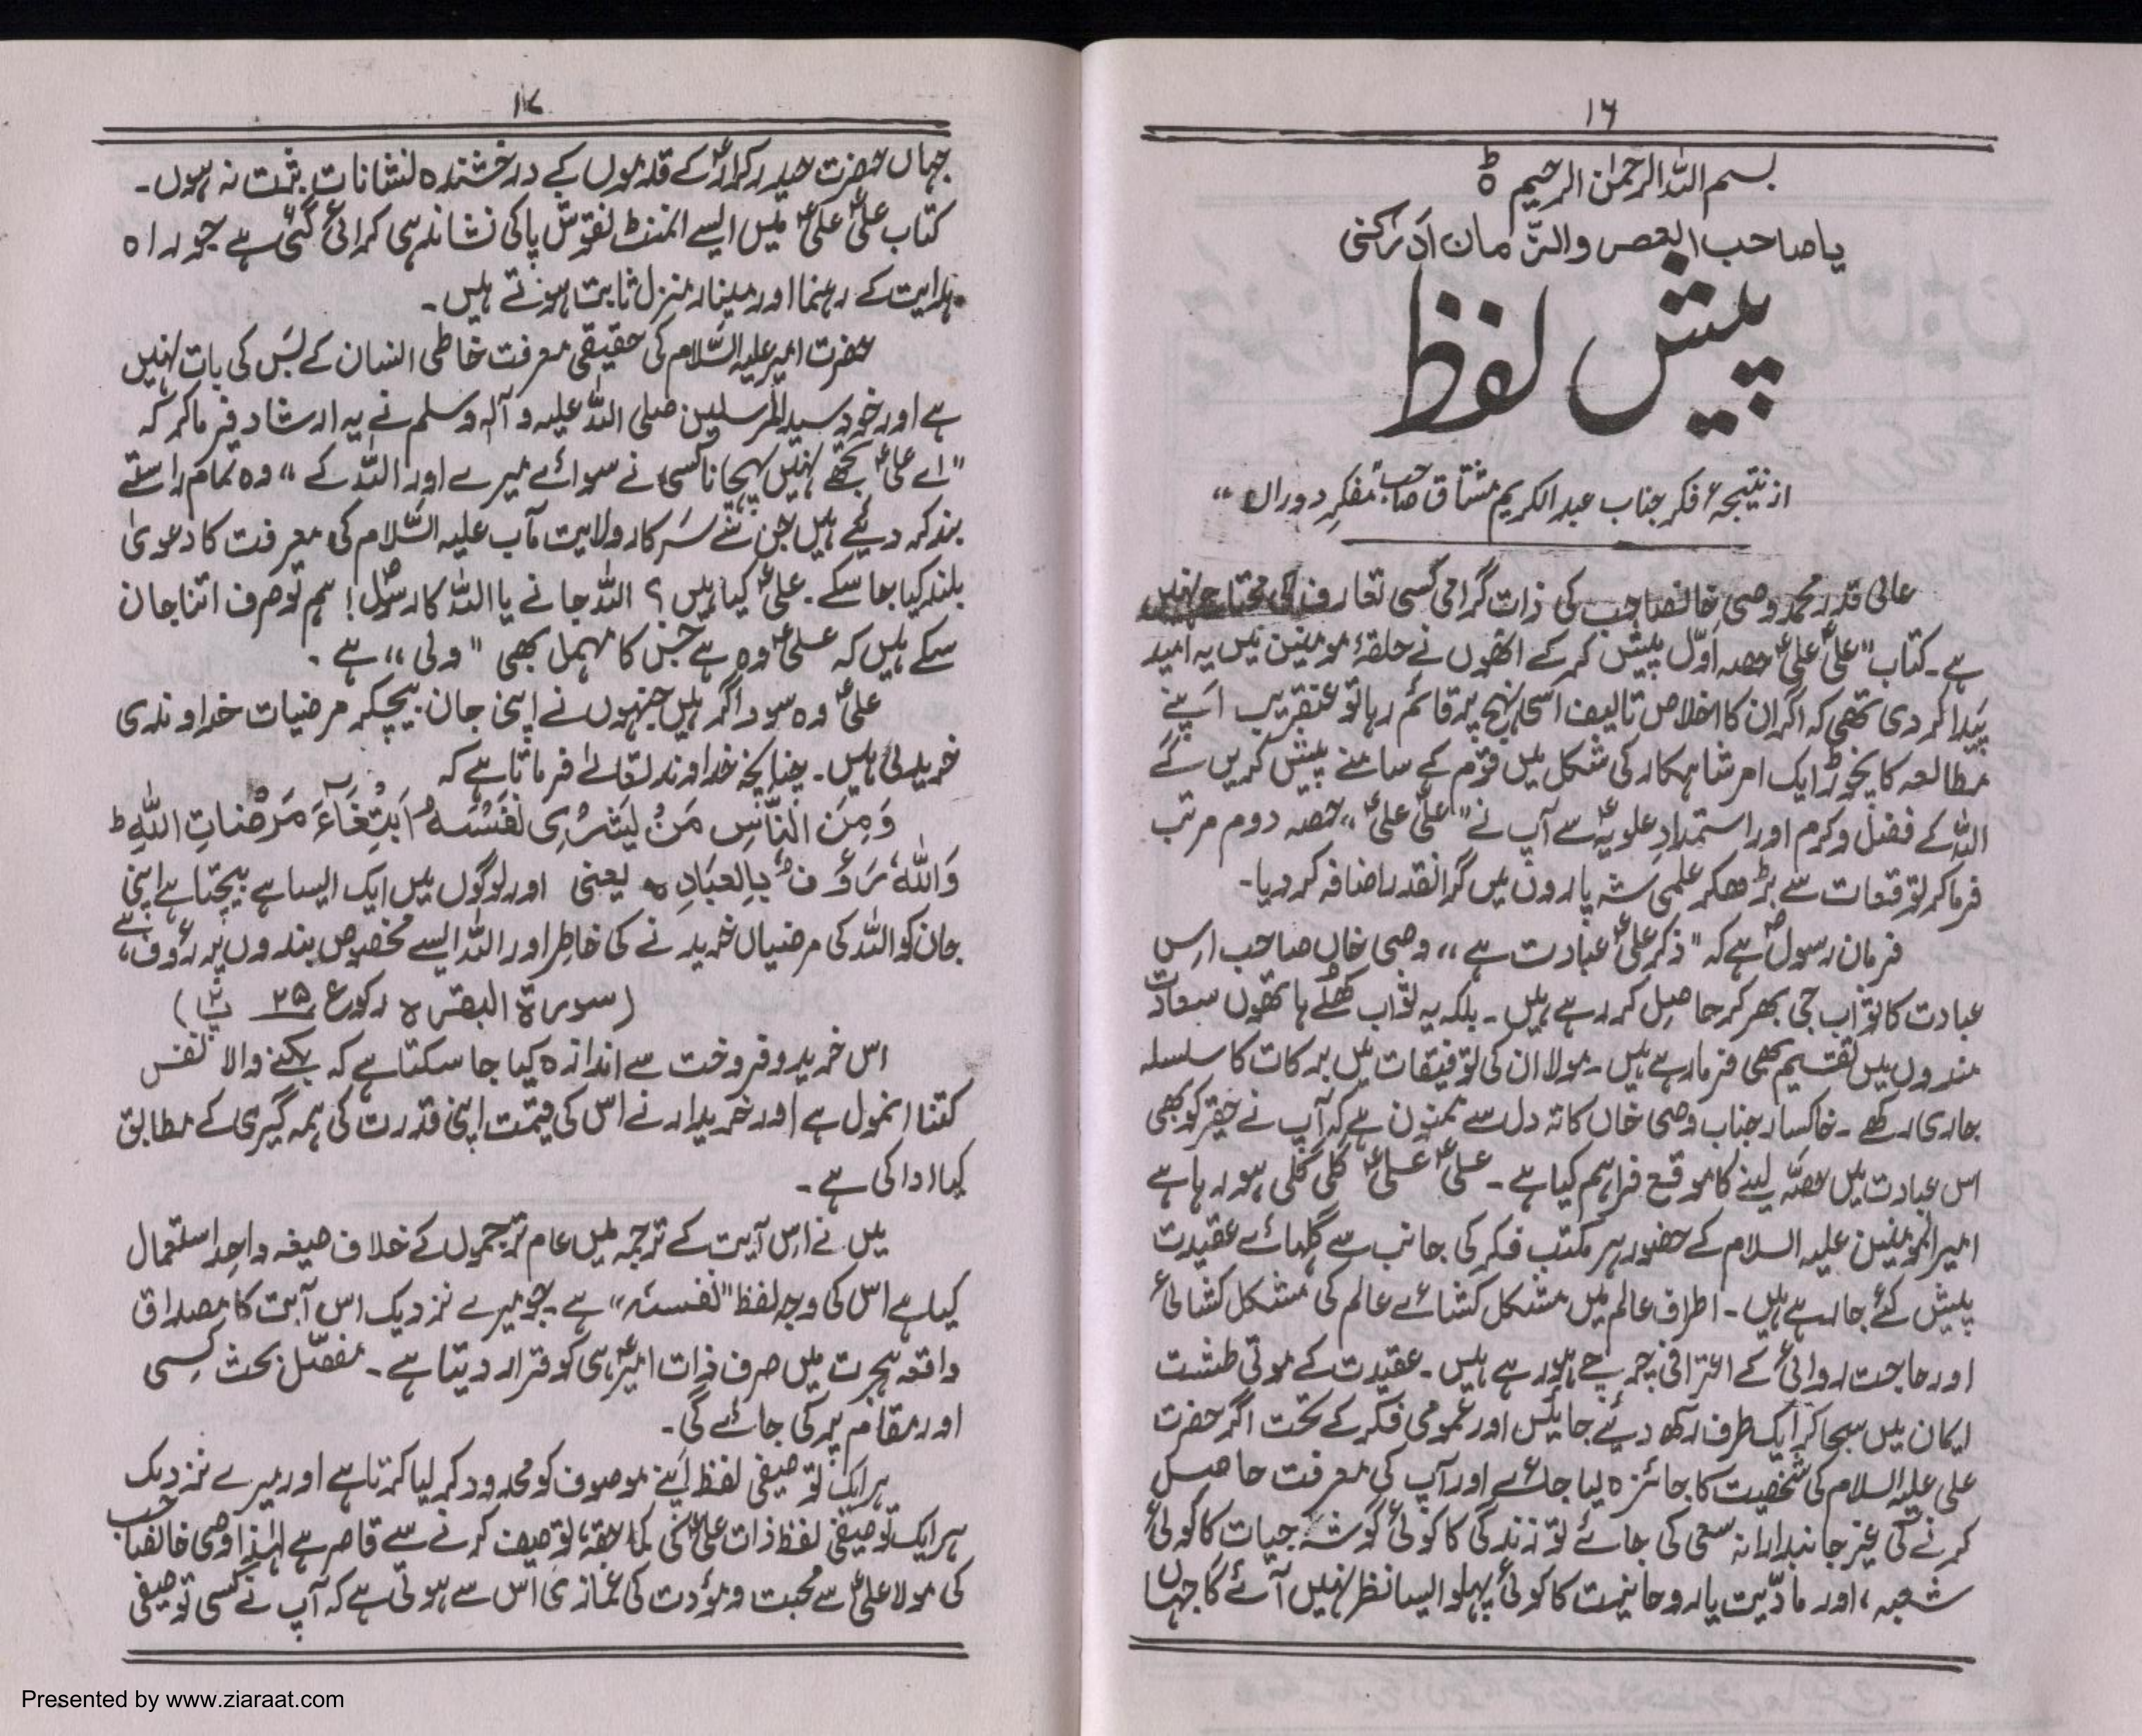 ۱۶
بسم اللہ الرحمٰن الرحیم ہ ط
یا صاحب العصر والزّمان ادَرکنی
پیش لفظ
از نتیجہء فکر جناب عبدالکریم مشتاق صاحب "مفکرِ دوراں"
عالی قدر محمد وصی خانصاحب کی ذات گرامی کسی تعارف کی محتاج نہیں
ہے۔ کتاب "علیؑ علیؑ" حصہ اوّل پیش کر کے انھوں نے حلقۂ مومنین میں یہ امید
پَیدا کر دی تھی کہ اگر ان کا اخلاص تالیف اسی نہج پر قائم رہا تو عنقریب اَپنے
مطالعہ کا نچوڑ ایک امر شاہکار کی شکل میں قوم کے سامنے پیش کریں گے
اللہ کے فضل و کرم اور استمدادِ علویہؑ سے آپ نے "علیؑ علیؑ" حصہ دوم مرتب
فرما کر توقعات سے بڑھکر علمی شہ پاروں میں گرانقدر اضافہ کر دیا۔
فرمان رسولؐ ہے کہ "ذکر علیؑ عبادت ہے"، وصی خاں صاحب اِس
عبادت کا ثواب جی بھر کر حاصِل کر رہے ہیں۔ بلکہ یہ ثواب کھُلے ہاتھوں سعادت
مندوں میں تقسیم بھی فرما رہے ہیں۔ مولا ان کی توفیقات میں برکات کا سلسلہ
جاری رکھے۔ خاکسار جناب وصی خاں کا تہ دل سے ممنون ہے کہ آپ نے حقیر کو بھی
اس عبادت میں حصّہ لینے کا موقع فراہم کیا ہے۔ علیؑ علیؑ گلی گلی ہو رہا ہے
امیرالمومنین علیہ السلام کے حضور ہر مکتب فکر کی جانب سے گلہائے عقیدت
پیش کئے جا رہے ہیں۔ اطراف عالم میں مشکل کشائے عالم کی مشکل کشائی
اور حاجت روائی کے اعترافی چرچے ہو رہے ہیں۔ عقیدت کے موتی طشت
ایمان میں سجا کر ایک طرف رکھ دیئے جائیں اور عمومی فکر کے تحت اگر حضرت
علی علیہ السلام کی شخصیت کا جائزہ لیا جائے اور آپ کی معرفت حاصل
کرنے کی غیر جانبدارانہ سعی کی جائے تو زندگی کا کوئی گوشہ، حیات کا کوئی
شعبہ، اور مادّیت یا روحانیت کا کوئی پہلو ایسا نظر نہیں آئے گا جہاں
۱۷
جہاں حضرت حیدر کرارؑ کے قدموں کے درخشندہ نشانات ثبت نہ ہوں۔
کتاب علیؑ علیؑ میں ایسے انمٹ نقوش پا کی نشاندہی کرائی گئی ہے جو راہ
ہدایت کے رہنما اور مینار منزل ثابت ہوتے ہیں۔
حضرت امیر علیہ السَّلام کی حقیقی معرفت خاطی انسان کے بس کی بات نہیں
ہے اور خود سید المرسلین صلی اللہ علیہ و آلہ وسلم نے یہ ارشاد فرما کر کہ
"اے علیؑ تجھے نہیں پہچانا کسی نے سوائے میرے اور اللہ کے"، وہ تمام راستے
بند کر دیئے ہیں جن سے سَرکار ولایت مآب علیہ السَّلام کی معرفت کا دعویٰ
بلند کیا جا سکے۔ علیؑ کیا ہیں؟ اللہ جانے یا اللہ کا رسولؐ! ہم تو صرف اتنا جان
سکے ہیں کہ علیؑ وہ ہے جس کا مہمل بھی "ولی" ہے۔
علیؑ وہ سوداگر ہیں جنہوں نے اپنی جان بیچکر مرضیات خداوندی
خریدلی ہیں۔ چنانچہ خداوند تعالےٰ فرماتا ہے کہ
وَمِنَ النَّاسِ مَنْ یَشْرِی نَفْسَہُ ابْتِغَاءَ مَرْضَاتِ اللّٰہِ ط
وَاللّٰہُ رَءُوفٌ بِالعِبَادِ ہ یعنی اور لوگوں میں ایک ایسا ہے بیچتا ہے اپنی
جان کو اللہ کی مرضیاں خریدنے کی خاطر اور اللہ ایسے مخصوص بندوں پر رءوف ہے
(سورۃ البقرہ رکوع ۲۵ پ ۲)
اس خرید و فروخت سے اندازہ کیا جا سکتا ہے کہ بکنے والا نفس
کتنا انمول ہے اور خریدار نے اس کی قیمت اپنی قدرت کی ہمہ گیری کے مطابق
کیا ادا کی ہے۔
میں نے اِس آیت کے ترجمہ میں عام ترجموں کے خلاف صیغہ واحد استعمال
کیا ہے اس کی وجہ لفظ "نفسہٗ" ہے جو میرے نزدیک اس آیت کا مصداق
واقعہ ہجرت میں صرف ذات امیرؑ ہی کو قرار دیتا ہے۔ مفصّل بحث کِسی
اور مقام پر کی جائے گی۔
ہر ایک توصیفی لفظ اَپنے موصوف کو محدود کر لیا کرتا ہے اور میرے نزدیک
ہر ایک توصیفی لفظ ذات علیؑ کی کما حقہٗ، توصیف کرنے سے قاصر ہے لہٰذا وصی خانصاحب
کی مولا علیؑ سے محبت و مودّت کی غمازی اس سے ہوتی ہے کہ آپ نے کسی توصیفی
Presented by www.ziaraat.com